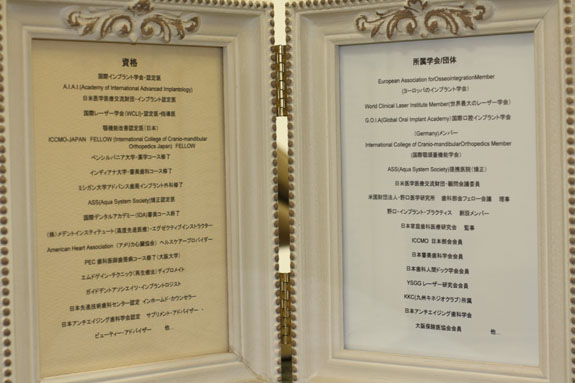 資格
国際インプラント学会・認定医
A.I.A.I.(Academy of International Advanced Implantology)
日本医学医療交流財団・インプラント認定医
国際レーザー学会(WCLI)・認定医・指導医
顎機能改善認定医(日本)
ICCMO-JAPAN FELLOW (International College of Cranio-mandibular
Orthopedics Japan) FELLOW
ペンシルバニア大学・薬学コース修了
インディアナ大学・審美歯科コース修了
ミシガン大学アドバンス歯周インプラント外科修了
ASS(Aqua System Society)矯正認定医
国際デンタルアカデミー(IDA)審美コース終了
(株)メデントインスティテュート(高度先進医療)・エグゼクティブインストラクター
American Heart Association (アメリカ心臓協会) ヘルスケアープロバイダー
PEC 歯科医師歯周病コース終了(大阪大学)
エムドゲイン・テクニック(再生療法)ディプロメイト
ガイデドントアソシエイツ・インプラントロジスト
日本先進技術歯科センター認定 インホームド・カウンセラー
日本アンチエイジング歯科学会認定 サプリメント・アドバイザー ・
ビューティー・アドバイザー 他...
所属学会/団体
European Association forOsseointegrationMember
(ヨーロッパのインプラント学会)
World Clinical Laser Institute Member(世界最大のレーザー学会)
G.O.I.A(Global Oral Implant Academy)(国際口腔インプラント学会)
(Germany)メンバー
International College of Cranio-mandibularOrthopedics Member
(国際顎頭蓋機能学会)
ASS(Aqua System Society)提携医院(矯正)
日米医学医療交流財団・顧問会議委員
米国財団法人・野口医学研究所 歯科部会フェロー会議 理事
野口・インプラント・プラクティス 新設メンバー
日本家庭歯科医療研究会 監事
ICCMO 日本部会会員
日本審美歯科学会会員
日本歯科人間ドック学会会員
YSGG レーザー研究会会員
KKC(九州キネジオクラブ)所属
日本アンチエイジング歯科学会
大阪保険医協会会員 他...